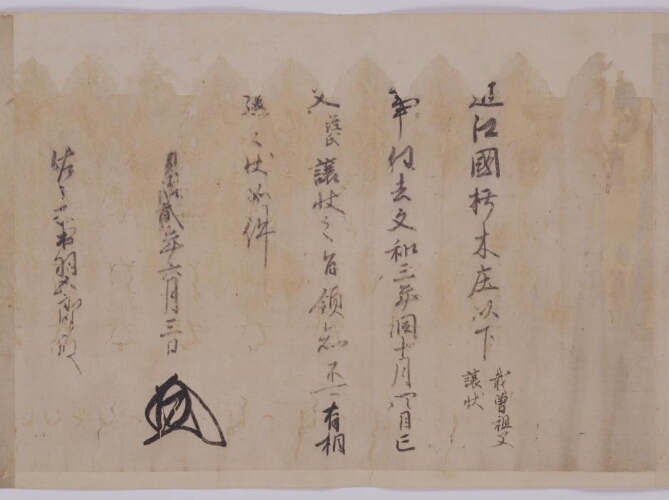 近江國朽木庄以下載曽祖父
譲状
事任去文和三年潤十月四日亡
父譲状之旨領知不可有相
違之状如件
貳年六月三日
佐々木出羽五郎殿